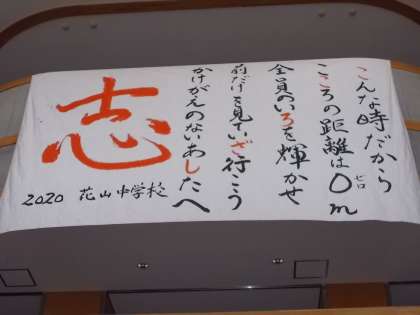 こんな時だから
こころの距離は0m
ゼロ
全員のいろを輝かせ
前だけを見ていざ行こう
かけがえのないあしたへ
志
2020 花山中学校